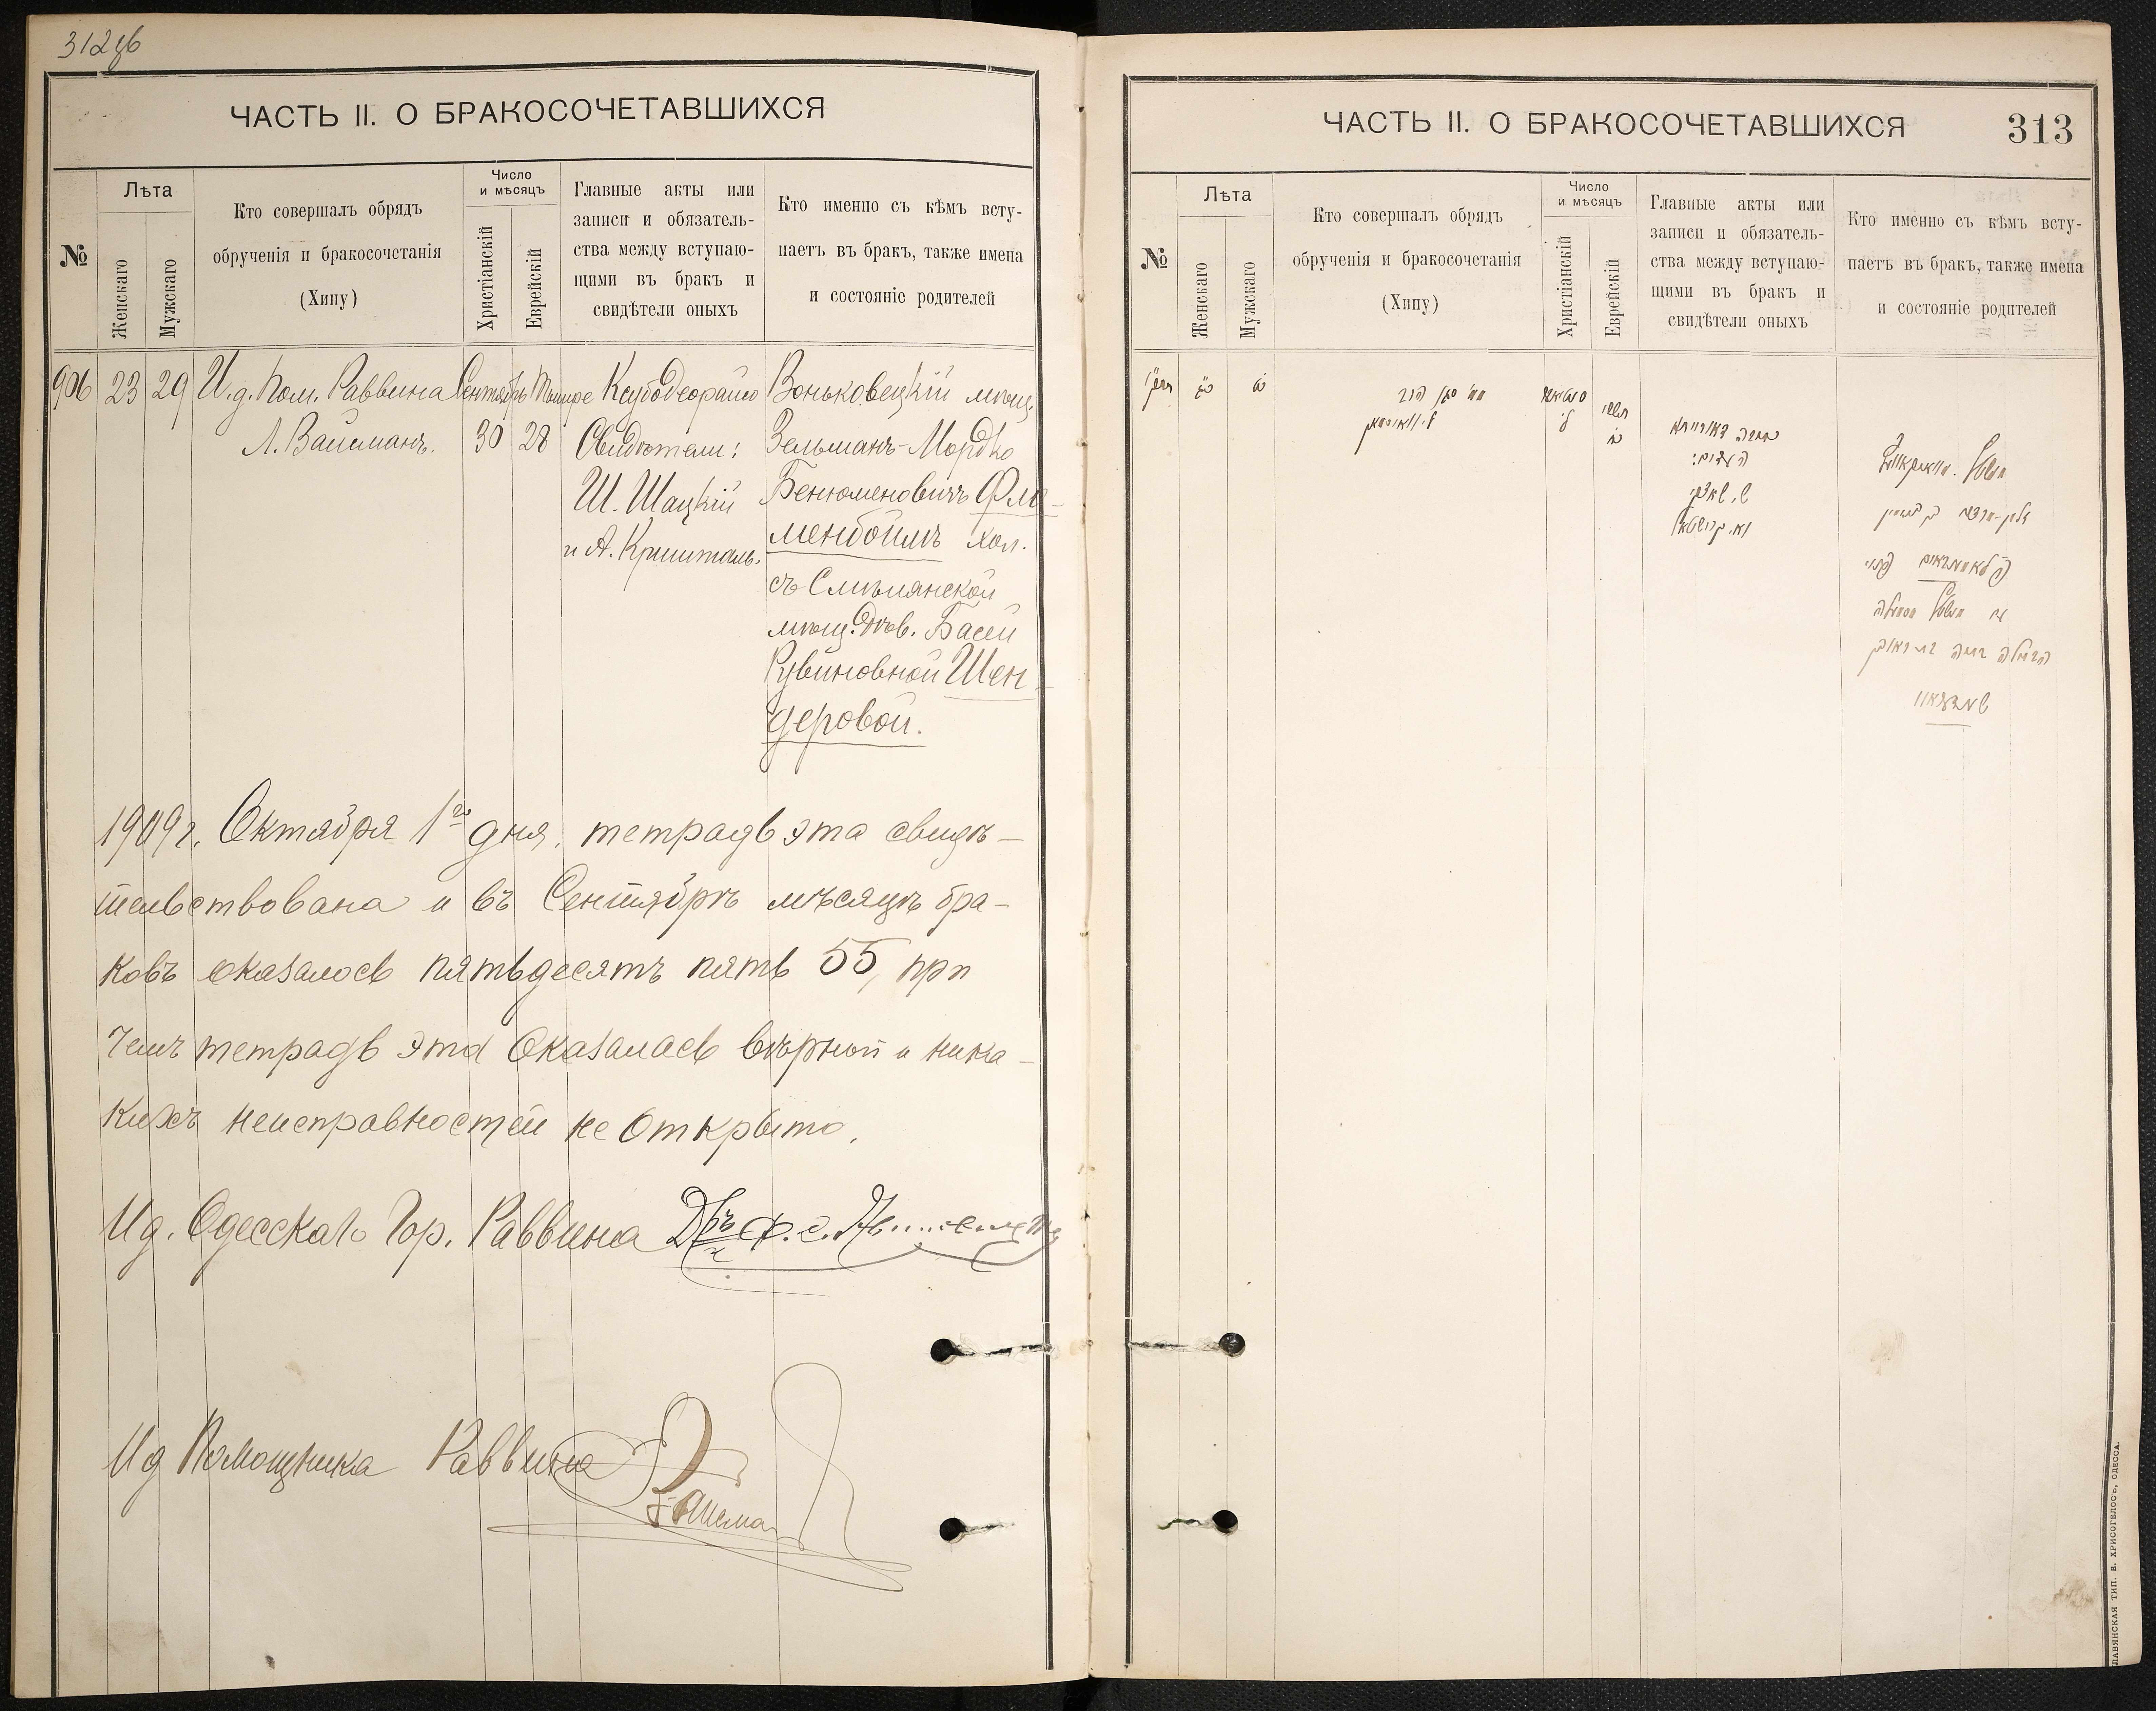 312об
ЧАСТЬ II. О БРАКОСОЧЕТАВШИХСЯ
№
Лѣта
Женскаго
Мужскаго
Кто совершалъ обрядъ
обрученія и бракосочетанія
(Хипу)
Число
и мѣсяцъ
Христіанскій
Еврейскій
Главные акты или
записи и обязатель-
ства между вступаю-
щими въ бракъ и
свидѣтели оныхъ
Кто именно съ кѣмъ всту-
паетъ въ бракъ, также имена
и состояніе родителей
906
23
29
И. д. Пом. Раввина
Л. Вайсманъ.
Сентябрь
30
Тишре
28
Ксубодеорайсо
Свидѣтели:
Ш. Шацкій
и А. Кришталь.
Воньковецкій мѣщ.
Зельманъ-Мордко
Бенюменовичъ Фла-
менбоимъ хол.
съ Смѣлянской
мѣщ. дѣв. Басей
Рувиновной Шен-
деровой.
1909 г. Октября 1го дня, тетрадь эта свидѣ-
тельствована и въ Сентябрѣ мѣсяцѣ бра-
ковъ оказалось пятьдесятъ пять 55, при
чемъ тетрадь эта оказалась вѣрной и ника-
кихъ неисправностей не открыто.
И д. Одесскаго Гор. Раввина
И д Помощника Раввина
ЧАСТЬ II. О БРАКОСОЧЕТАВШИХСЯ
313
№
Лѣта
Женскаго
Мужскаго
Кто совершалъ обрядъ
обрученія и бракосочетанія
(Хипу)
Число
и мѣсяцъ
Христіанскій
Еврейскій
Главные акты или
записи и обязатель-
ства между вступаю-
щими въ бракъ и
свидѣтели оныхъ
Кто именно съ кѣмъ всту-
паетъ въ бракъ, также имена
и состояніе родителей
כתובה דאורייתא
העדים:
ש. שאצקי
ЛАВЯНСКАЯ ТИП. Е. ХРИСОГЕЛОСЪ, ОДЕССА.